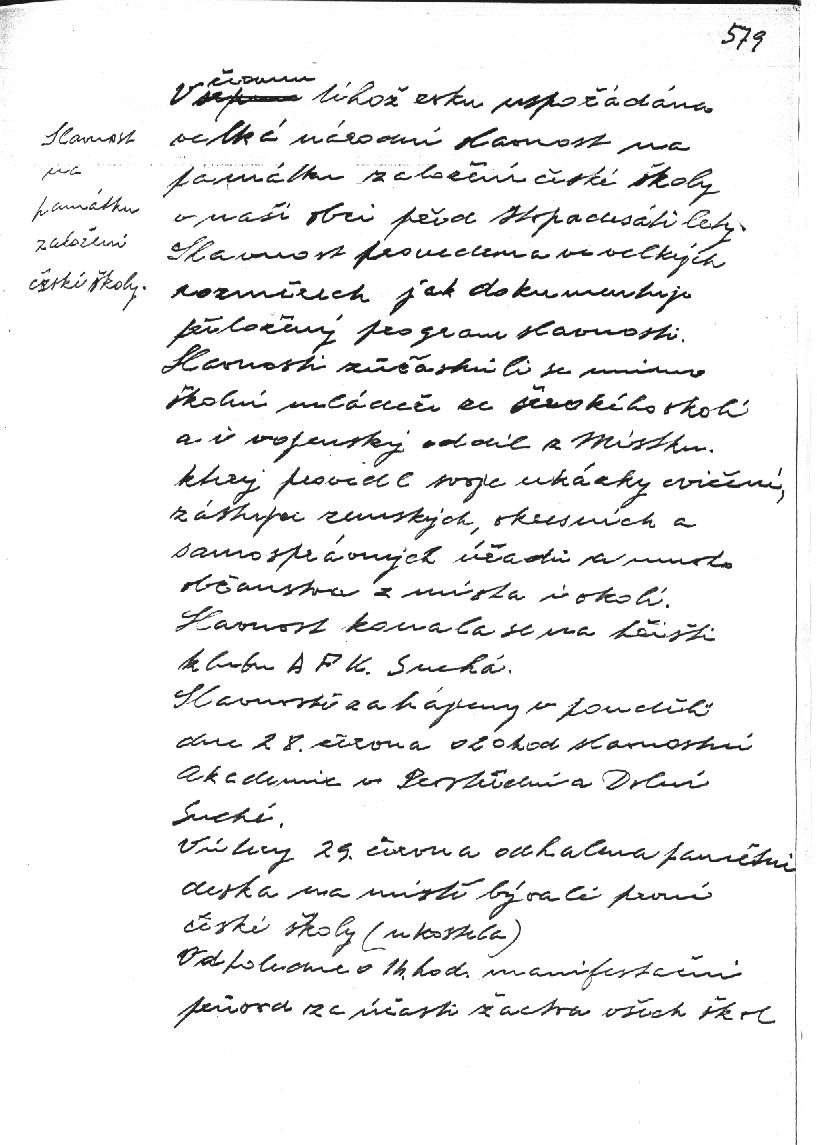 579
Slavnost
na
památku
založení
české školy.
červnu
V srpnu téhož roku uspořádána
velká národní slavnost na
památku založení české školy
v naší obci před stopadesáti lety.
Slavnost provedena ve velkých
rozměrech jak dokumentuje
přiložený program slavnosti.
Slavnosti zúčastnili se mimo
školní mládeže ze širokého okolí
a i vojenský oddíl z Místku.
který provedl svoje ukázky cvičení,
zástupci zemských, okresních a
samosprávných úřadů a mnoho
občanstva z místa i okolí.
Slavnost konala se na hřišti
klubu A F K. Suchá.
Slavnosti zahájeny v pondělí
dne 28. června o 20 hod slavnostní
Akademie v Prostřední a Dolní
Suché.
V úterý 29. června odhalena pamětní
deska na místě bývalé první
české školy (u kostela)
V odpoledne o 14. hod. manifestační
průvod za účasti žactva všech škol